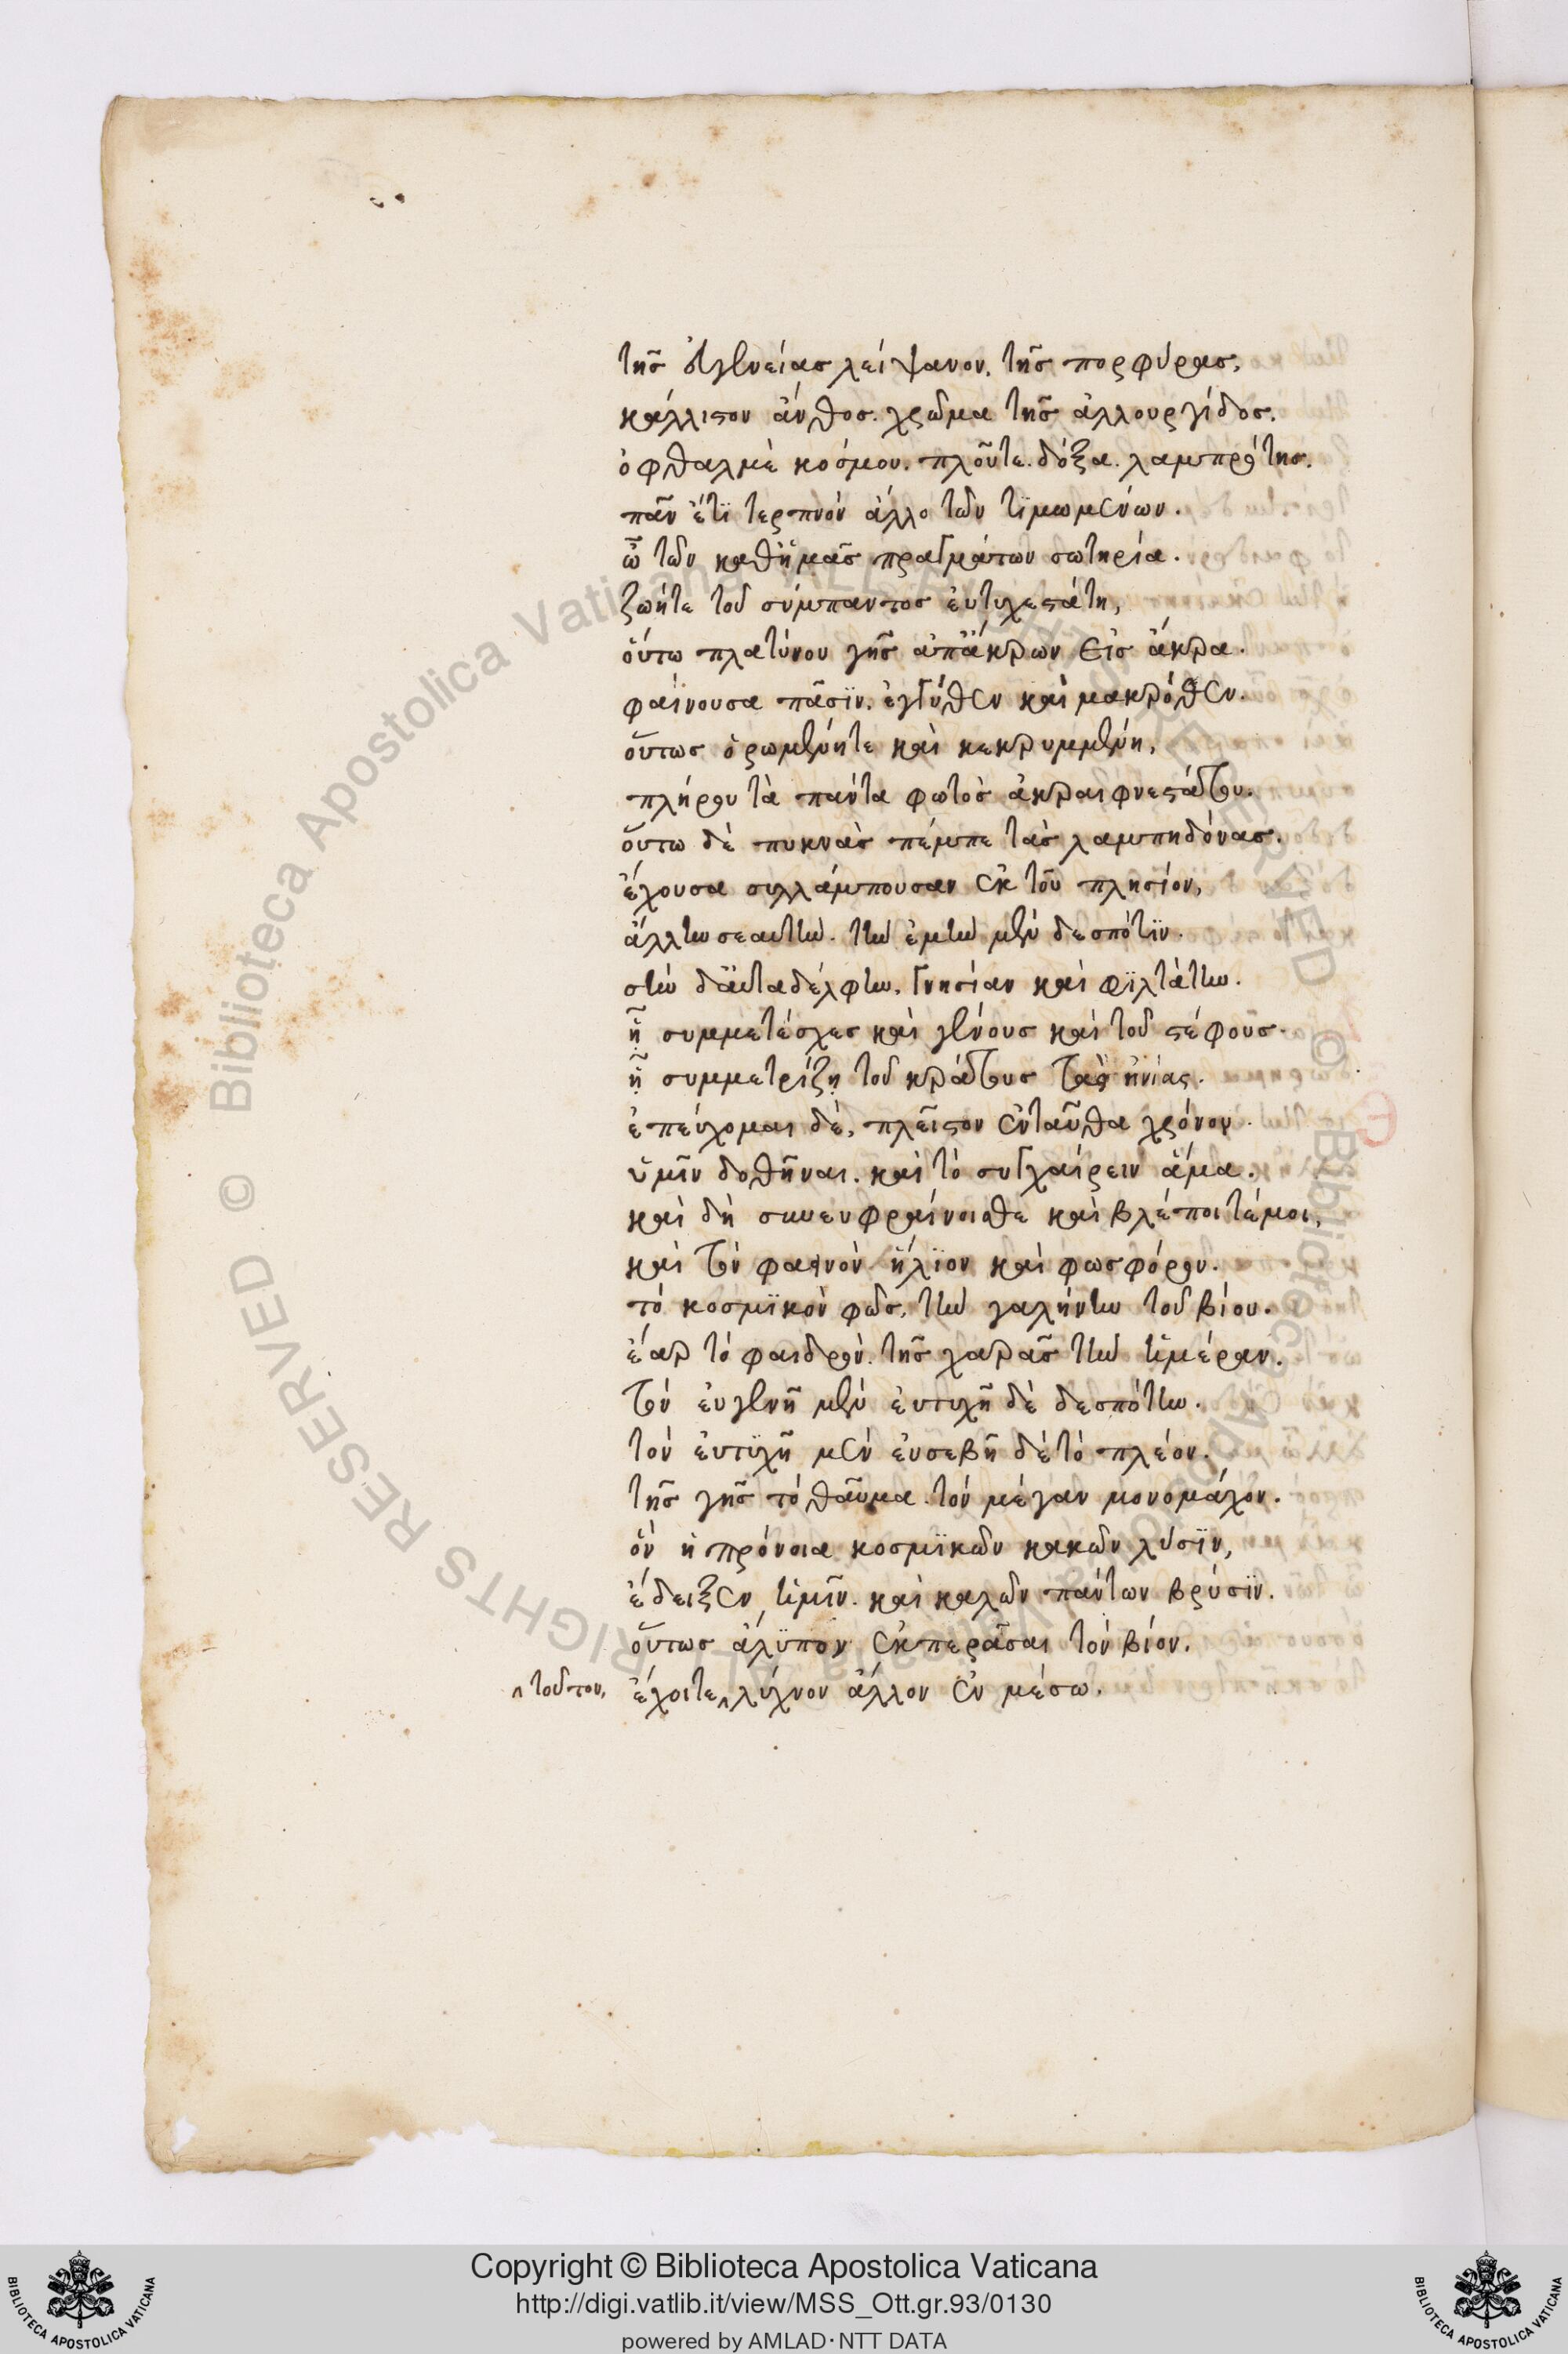 τῆς εὐγενείας λείψανον. τῆς πορφύρας,
κάλλιστον ἄνθος. χρῶμα τῆς ἁλλουργίδος.
ὀφθαλμὲ κόσμου. πλοῦτε. δόξα. λαμπρότης.
πᾶν ἔτϊ τερπνὸν ἄλλο τῶν τϊμωμένων.
ὦ τῶν καθἡμᾶς πραγμάτων σωτηρία.
ζωήτε τοῦ σύμπαντος εὐτυχεστάτη,
οὕτω πλατύνου γῆς ἀπἄκρων εἰς ἄκρα.
φαίνουσα πᾶσϊν. ἐγγύθεν καὶ μακρόθεν.
οὕτως ὁρωμένητε καὶ κεκρυμμένη,
πλήρου τὰ πάντα φωτὸς ἀκραιφνεστάτου.
οὕτω δὲ πυκνὰς πέμπε τὰς λαμπηδόνας.
ἔχουσα συλλάμπουσαν ἐκ τοῦ πλησίον,
ἄλλην σεαυτὴν. τὴν ἐμὴν μὲν δεσπότϊν.
σὴν δαὐταδέλφην. γνησίαν καὶ φϊλτάτην.
ἧ συμμετέσχες καὶ γένους καὶ τοῦ στέφους.
ἧ συμμετρίζῃ τοῦ κράτους τὰς ἡνίας.
ἐπεύχομαι δὲ, πλεῖστον ἐνταῦθα χρόνον.
ὑμῖν δοθῆναι. καὶ τὸ συγχαίρειν ἅμα.
καὶ δὴ συνευφραίνοισθε καὶ βλέποιτέμοι,
καὶ τὸν φαεινὸν ἥλϊον καὶ φωσφόρον.
τὸ κοσμϊκὸν φῶς, τὴν γαλήνην τοῦ βίου.
ἔαρ τὸ φαιδρὸν. τῆς χαρᾶς τὴν ἡμέραν.
τὸν εὐγενῆ μὲν εὐτυχῆ δὲ δεσπότην.
τὸν εὐτϋχῆ μὲν εὐσεβῆ δὲ τὸ πλέον.
τῆς γῆς τὸ θαῦμα. τὸν μέγαν μονομάχον.
ὃν ἡ πρόνοια κοσμϊκῶν κακῶν λύσϊν,
ἔδειξεν ἡμῖν. καὶ καλῶν πάντων βρύσϊν.
οὕτως ἄλϋπον ἐκπερᾶσαι τὸν βίον.
‸ τοῦτον, ἔχοιτε‸ λύχνον ἄλλον ἐν μέσω.
Copyright © Biblioteca Apostolica Vaticana
http://digi.vatlib.it/view/MSS_Ott.gr.93/0130
powered by AMLAD·NTT DATA
BIBLIOTECA APOSTOLICA VATICANA
BIBLIOTECA APOSTOLICA VATICANA
© Biblioteca Apostolica Vaticana ALL RIGHTS RESERVED
© Biblioteca Apostolica Vaticana ALL RIGHTS RESERVED